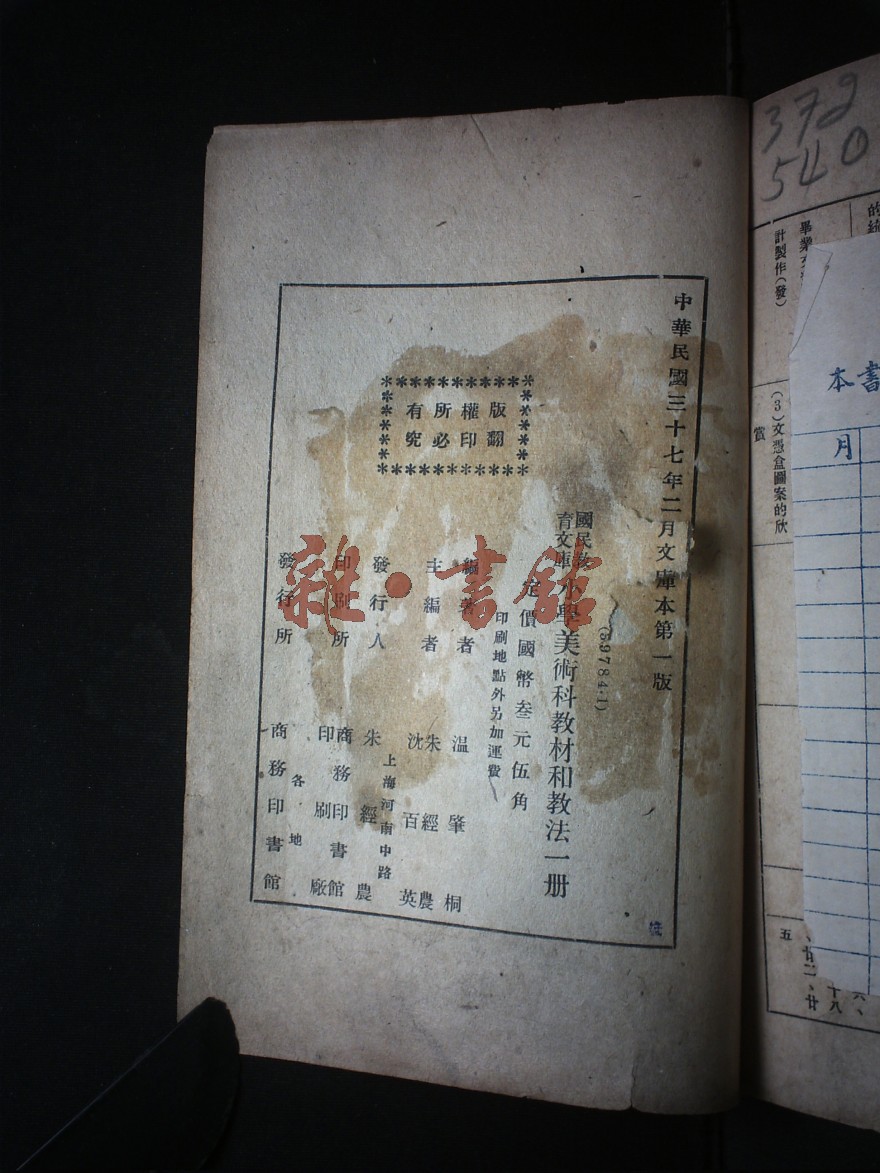 中華民國三十七年二月文庫本第一版
(59784·1)
國民教育文庫
小學美術科教材和教法一册
定價國幣叁元伍角
印刷地點外另加運費
版權所有
翻印必究
編著者 温肇桐
主編者 朱經農 沈百英
上海河南中路
發行人 朱經農
印刷所 商務印書館印刷廠
各地
發行所 商務印書館
雜·書館
372
540
計製作(發)
(3)文憑盒圖案的欣賞
五
本書
月